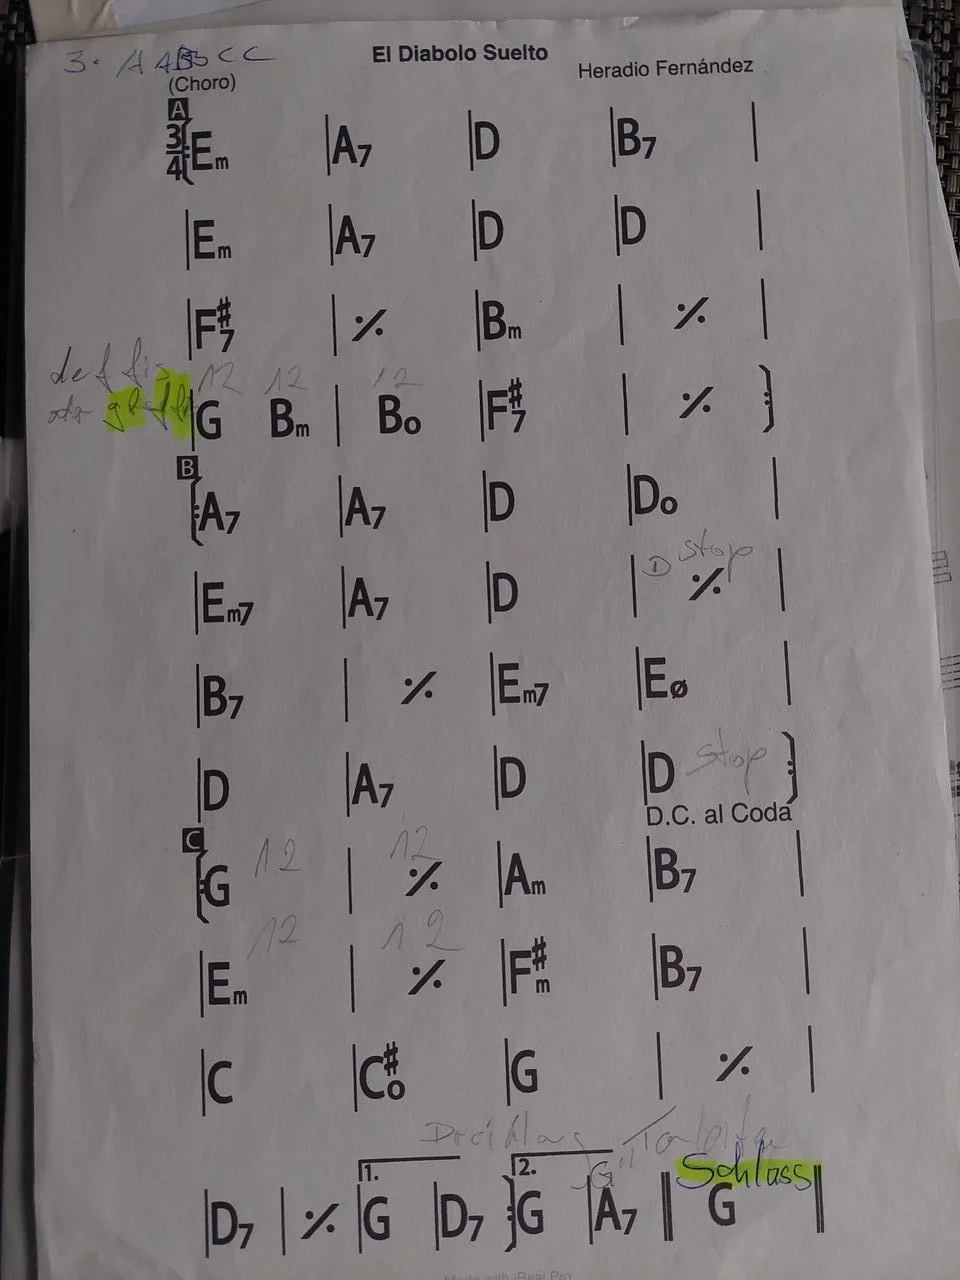 3. AABBCC
El Diabolo Suelto
(Choro)
Heradio Fernández
A
3/4 Em | A7 | D | B7 |
| Em | A7 | D | D |
| F#7 | 𝄎 | Bm | 𝄎 |
12 12 12
| G Bm | Bo | F#7 | 𝄎
B
A7 | A7 | D | Do |
D Stop
| Em7 | A7 | D | 𝄎 |
| B7 | 𝄎 | Em7 | Eø |
| D | A7 | D | D Stop
D.C. al Coda
C
12 12
G | 𝄎 | Am | B7 |
12 12
| Em | 𝄎 | F#m | B7 |
| C | C#o | G | 𝄎 |
Dreiklang Tonleiter
1. 2. "G" Schluss
| D7 | 𝄎 | G | D7 G | A7 || G ||